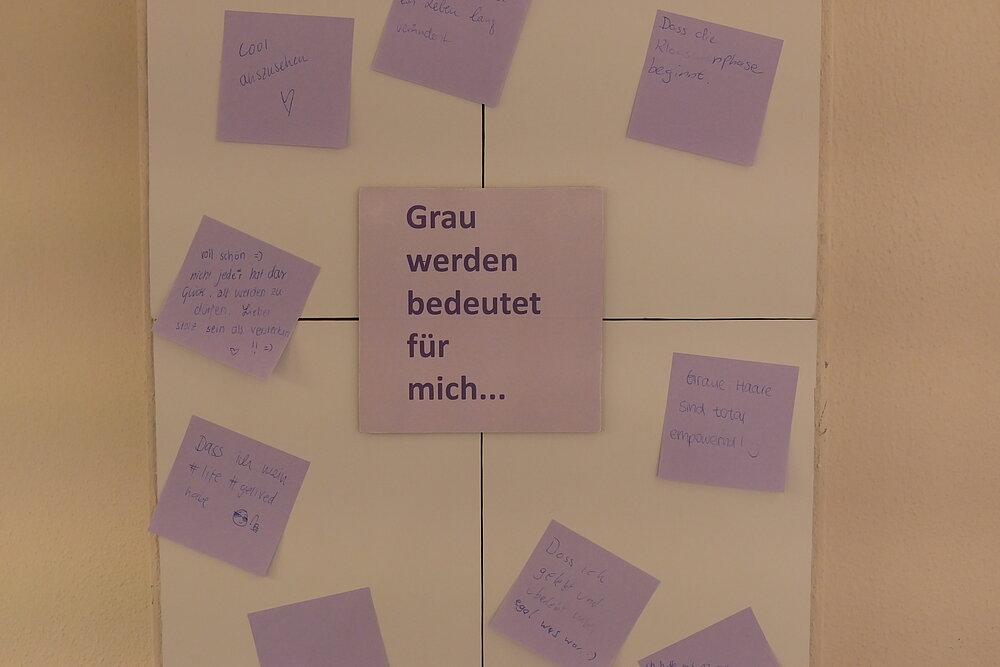 Cool
auszusehen
ein Leben lang
verändert
Dass die
beginnt.
Grau
werden
bedeutet
für
mich...
voll schön =)
nicht jeder hat das
Glück, alt werden zu
dürfen. Lieber
stolz sein als verstecken
!! =)
Graue Haare
sind total
empowernd!
Dass ich mein
#life #gelived
habe
Dass ich
gelebt und
überlebt habe
egal was war :)